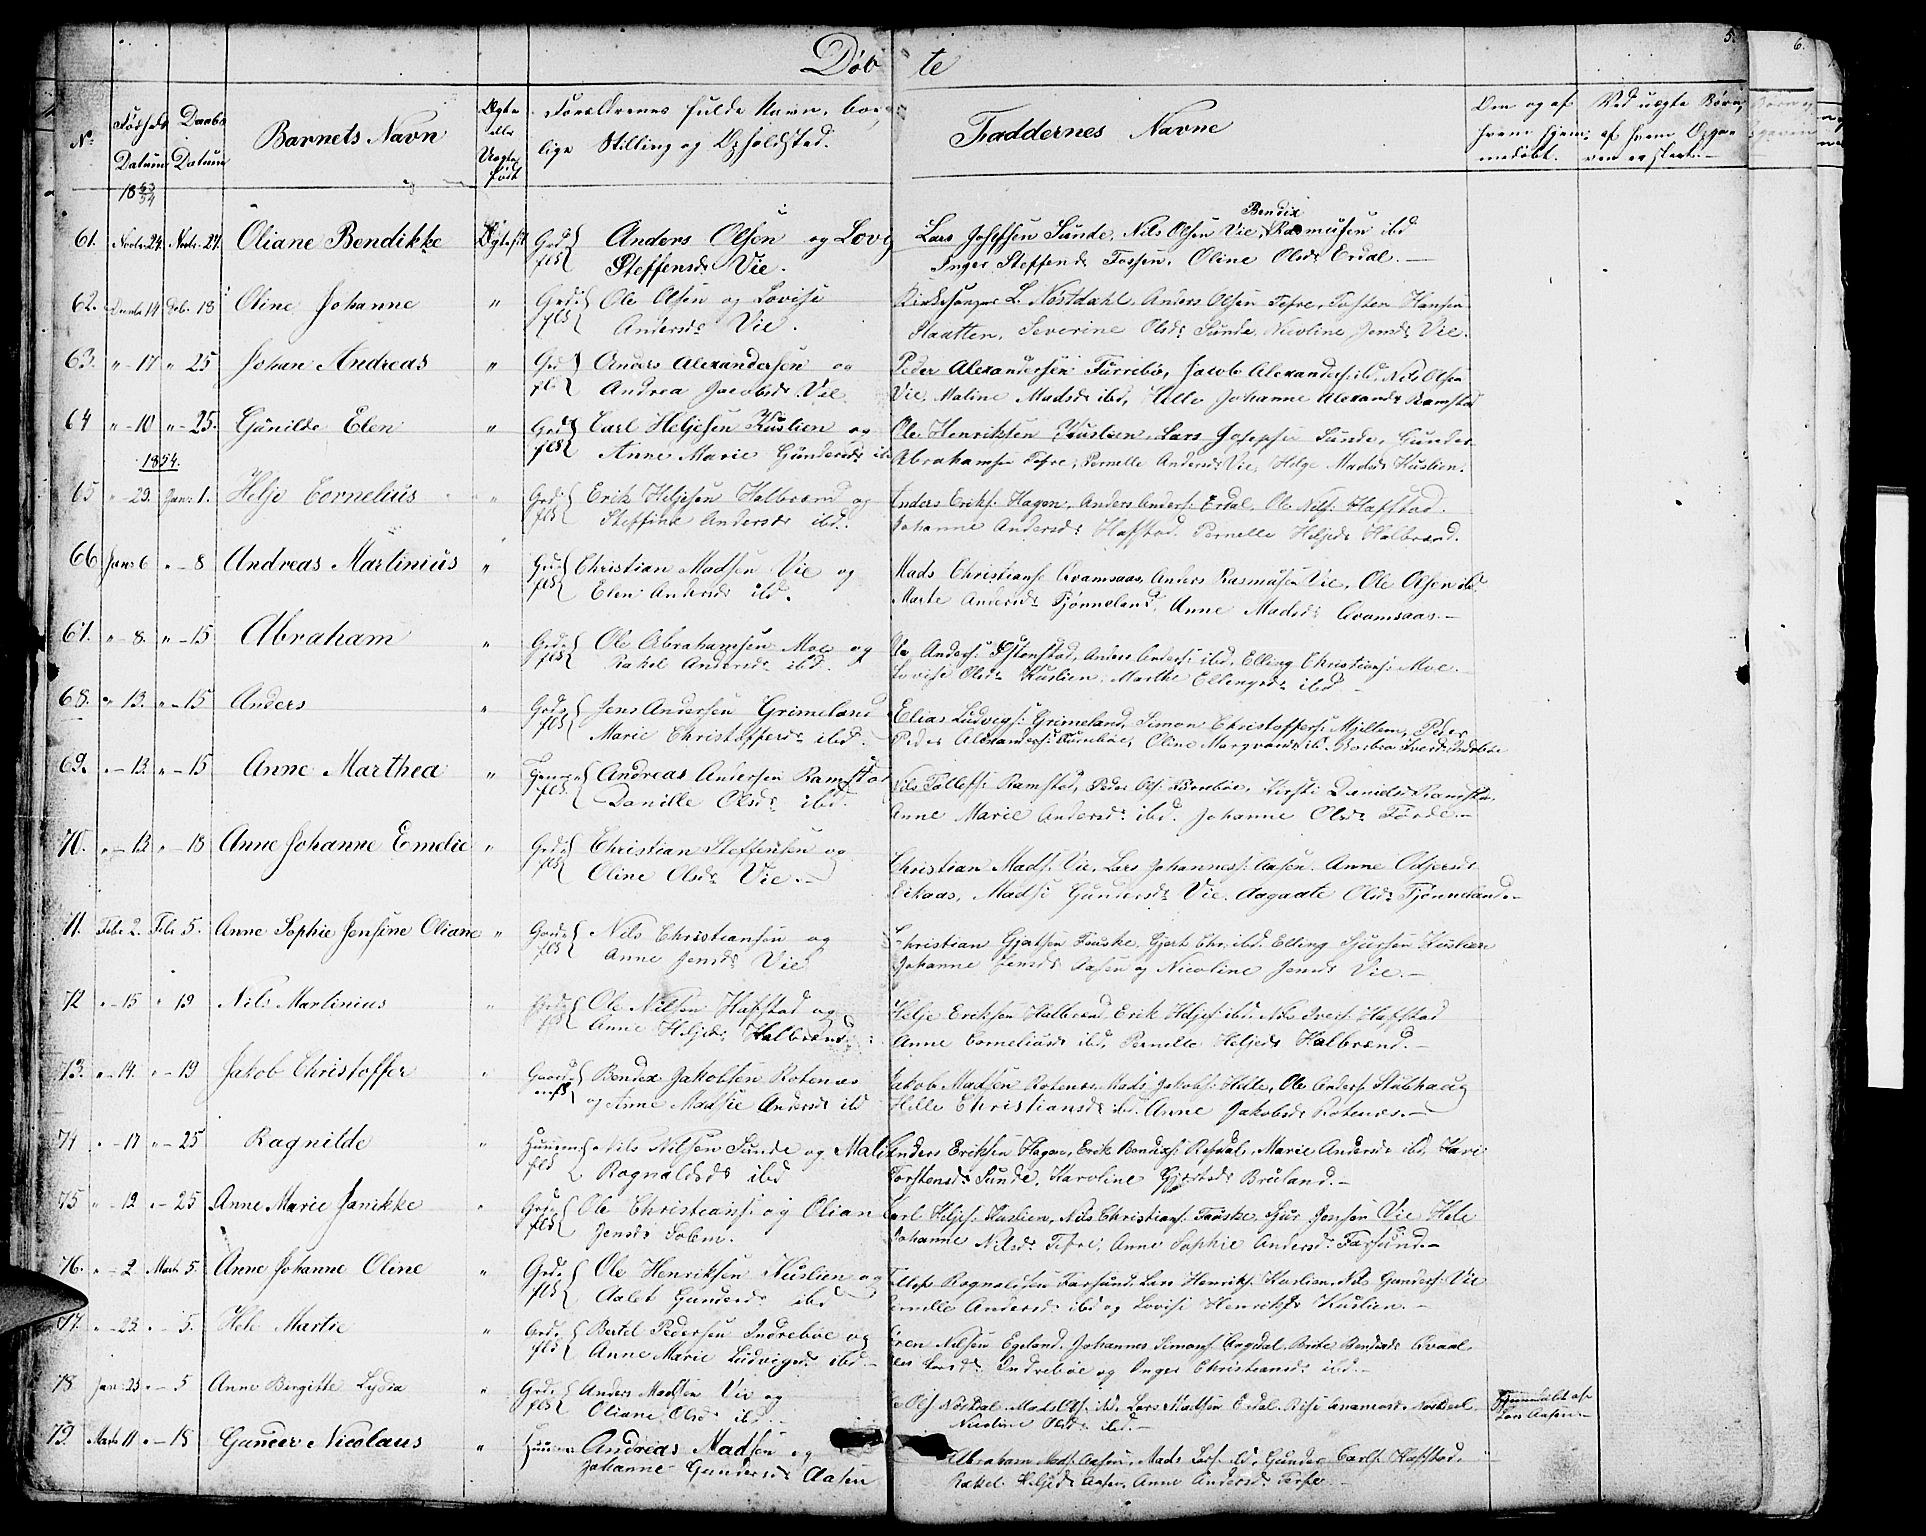 Døbte
5.
6.
No
Fødsels Datum
Daabs Datum
Barnets Navn
Ægte eller Uægte født
Forældrenes fulde Navn, borgerlige Stilling og Opholdsted.
Faddernes Navne
Om og af hvem hjemmedøbt.
Ved uægte Børn, af hvem Opgaven er skeet.
1853/54
61. Novbr. 24. Novbr. 27. Oliane Bendikke Ægtefst Grd: flk Anders Olsen og Lovise Steffensdr Vie. Lars Josephsen Sunde, Nils Olsen Vie, Bendix Rasmusen ibd
Inger Steffensdr Fossen, Oline Olsdr Erdal.
62. Decbr 14 Deb. 18 Oline Johanne " Grd: flk Ole Olsen og Lovise Andersdr Vie. Kirkesanger L. Nøstdahl, Anders Olsen Tefre, Torsten Hansen
Slaatten, Severine Olsdr Sunde, Nicoline Jensdr Vie.
63. " - 17 " 25 Johan Andreas " Grd flk Anders Alexandersen og Andrea Jacobsdr Vie Peder Alexandersen Furrebø, Jacob Alexanders: ibd, Nils Olsen
Vie, Maline Madsdr ibd, Helle Johanne Alexandr Ramstad
64 " - 10 " - 25. Gunilde Elen " Grd flk Carl Heljesen Kuslien og Anne Marie Gundersdr ibd Ole Henriksen Kuslien, Lars Josephse Sunde, Gunder
Abrahamsen Tefre, Pernelle Andersdr Vie, Helge Madsdr Kuslien.
1854.
65 " - 29. Jan: 1. Helje Cornelius " Grd: flk Erik Heljesen Halbrænd og Steffine Andersdr ibd. Anders Eriks: Hagen, Anders Anders: Erdal, Ole Nils: Hafstad.
Johanne Andersdr Hafstad. Pernelle Heljedr Halbrænd.
66 Jan: 6 " - 8 Andreas Martinius " Grd flk Christian Madsen Vie og Elen Andersdr ibd. Mads Christians: Qvamsaas, Anders Rasmusen Vie, Ole Olsen ibd.
Marte Andersdr Tjønneland, Anne Madsdr Qvamsaas.
67. " - 8. " - 15 Abraham " Grd: flk Ole Abrahamsen Moe og Rakel Andersdr ibd. Anders: Anders Anders: ibd, Elling Christians: Moe.
Lovise Olsdr Kuslien. Marthe Ellingsdr ibd
68. " 13. " - 15 Anders " Grd: flk Jens Andersen Grimeland Marie Christoffersdr ibd. Elias Ludvigs: Grimeland, Simon Christoffers: Mjellem, Peder
Peder Alexanders: Furrebøe, Oline
69. " - 13. " - 15 Anne Marthea " flk Andreas Andersen Ramstad Danille Olsdr ibd. Nils Tollefs: Ramstad, Peder Ols: Furrebøe, Kirsti Danielsdr Ramstad,
Anne Marie Andersdr ibd. Johanne Olsdr Førde.
70. " - 13 " - 18 Anne Johanne Emelie " Grd: flk Christian Steffensen og Oline Olsdr Vie. Christian Mads: Vie, Lars Johannes: Aasen. Anne Odjersdr
Eikaas, Madsi Gundersdr Vie. Aagaate Olsdr Tjønneland.
71. Feb: 2. Feb 5. Anne Sophie Jensine Oliane " flk Nils Christiansen og Anne Jensdr Vie Christian Gjertsen Fauske, Gjert Chr: ibd. Elling Sjursen Kuslien
Johanne Jensdr Aasen og Nicoline Jensdr Vie.
72 " - 15 " 19 Nils Martinius " Grd: flk Ole Nilsen Hafstad og Anne Heljedr Halbrænd Helje Eriksen Halbrænd Erik Heljes: ibd. Nils Ivers: Hafstad
Anne Corneliusdr ibd, Pernelle Heljedr Halbrænd.
73. " - 14. " - 19 Jakob Christoffer " Bendix Jakobsen Rotenæs og Anne Madsie Andersdr ibd Jakob Madsen Rotenæs, Mads Jakobs: Hille, Ole Anders: Stubhaug
Hille Christiansdr ibd. Anne Jakobsdr Rotenæs.
74 " - 17 " - 25 Ragnilde " Huusm flk Nils Nilsen Sunde og Mali Rognaldsdr ibd Anders Eriksen Hagen, Erik Bendixs: Refsdal, Marie Andersdr ibd, Kari
Torstensdr Sunde, Karoline Gjertsdr Bruland.
75 " - 12 " - 25 Anne Marie Janikke " Grd: flk Ole Christians: og Oliane Jensdr Solem. Carl Heljes: Kuslien, Nils Christians: Fauske, Sjur Jensen Vie Hele
Johanne Nilsdr Tefre, Anne Sophie Andersdr Farsund.
76. " - 2 Marts 5. Anne Johanne Oline " Grd: flk Ole Henriksen Kuslien og Aalet Gundersdr ibd Rognaldsen Farsund, Lars Henriks: Kuslien, Nils Gunders: Vie
Pernelle Andersdr ibd og Lovise Henriksdr Kuslien.
77. " - 23. " - 5. Hele Martie " Grd: flk Bertel Pedersen Indrebøe og Anne Marie Ludvigsdr ibd. Nilsen Egeland. Johannes Simons: Angedal. Brite Bendixdr Qvaal,
Larsdr Indrebøe og Inger Christiansdr ibd.
78 Jan: 23 " - 5 Anne Bergitte Lydia " Grd: flk Anders Madsen Vie og Oliane Olsdr ibd. Ols: Nøsdal. Mads Ols: ibd. Lars Madsen Erdal.
Nicoline Olsdr ibd. Hjemdøbt af Lars Aasen
79. Marts 11 " - 18 Gunder Nicolaus " Huusm Andreas Madsen og Johanne Gundersdr Aasen Abraham Mads: Aasen, Mads Lars: ibd, Gunder Carls: Hafstad,
Rakel Heljedr Aasen, Anne Andersdr Tefre